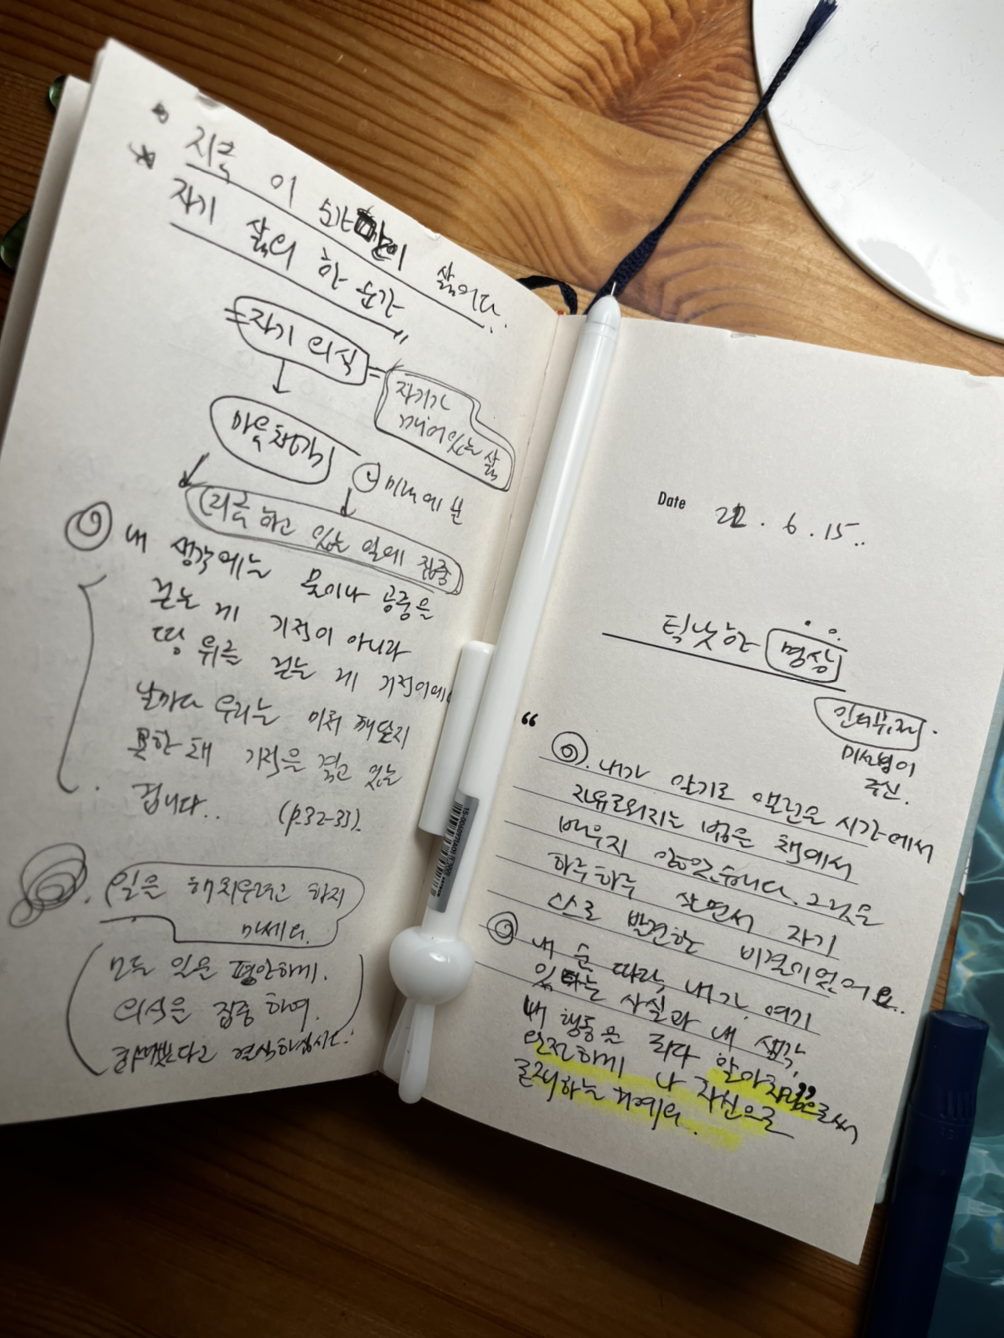 지금 이 순간이 삶이다.
자기 삶의 한 순간
=자기 의식
=
자기가
깨어있는 삶
마음챙김
미래에
지금 하고 있는 일에 집중
내 생각에는 물이나 공중을
걷는 게 기적이 아니라
땅 위를 걷는 게 기적이에요
날마다 우리는 미처 깨닫지
못한 채 기적을 겪고 있는
겁니다.. (p.32-33).
일을 해치우려고 하지
마세요.
모든 일을 평안하게.
의식을 집중하여.
Date 22.6.15..
틱낫한 명상
인터뷰.
“
내가 알기로 앨런은 시간에서
자유로워지는 법을 책에서
배우지 않았습니다. 그것은
하루하루 살면서 자기
스스로 발견한 비결이었어요..
내 숨 따라, 내가 여기
있다는 사실과 내 생각,
내 행동을 모두 알아차림으로써
완전하게 나 자신으로
존재하는 거예요.
”